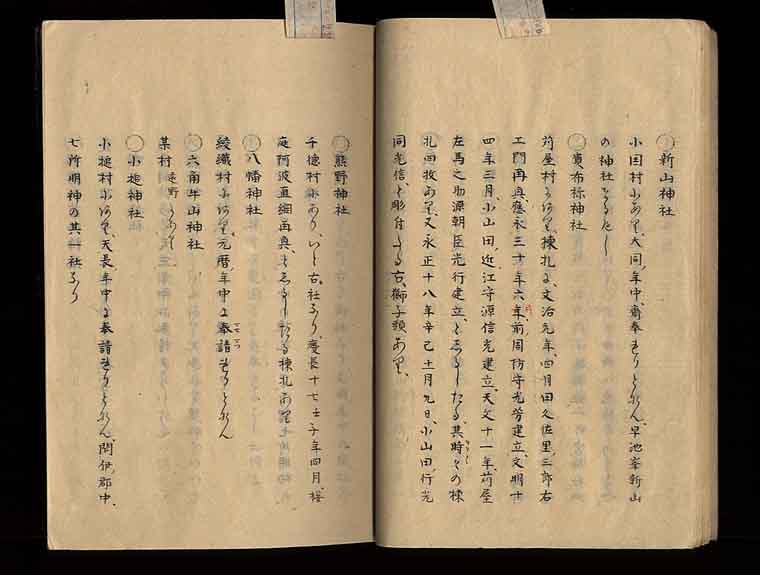 ○新山神社
小国村にあり、大同、年中、齋奉るとなん、早池峯新山
の神社
○貴布祢神社
苅屋村にあり、棟札に、文治元年、四月田久佐里、三郎右
エ門再興、應永三十年六年、前周防守光勞建立、文明十
四年三月、小山田、近江守源信光建立、天文十一年、苅屋
左馬之助源朝臣光行建立、としるしたる、其時々の棟
札四枚あり、又永正十八年辛己十一月九日、小山田、行光
同光信、と彫付たる古、獅子頭あり、
○熊野神社
千徳村にあり、いと古社なり、慶長十七壬子年四月、桜
庭阿波直綱再興、としるしたる棟札あり
○八幡神社
綾織村にあり、元暦、年中に奉請るとなん
○六角牛山神社
某村 遠野 にあり
○小槌神社
小槌村にあり、天長、年中に奉請るとなん、閇伊、郡中、
七所明神の其一社なり